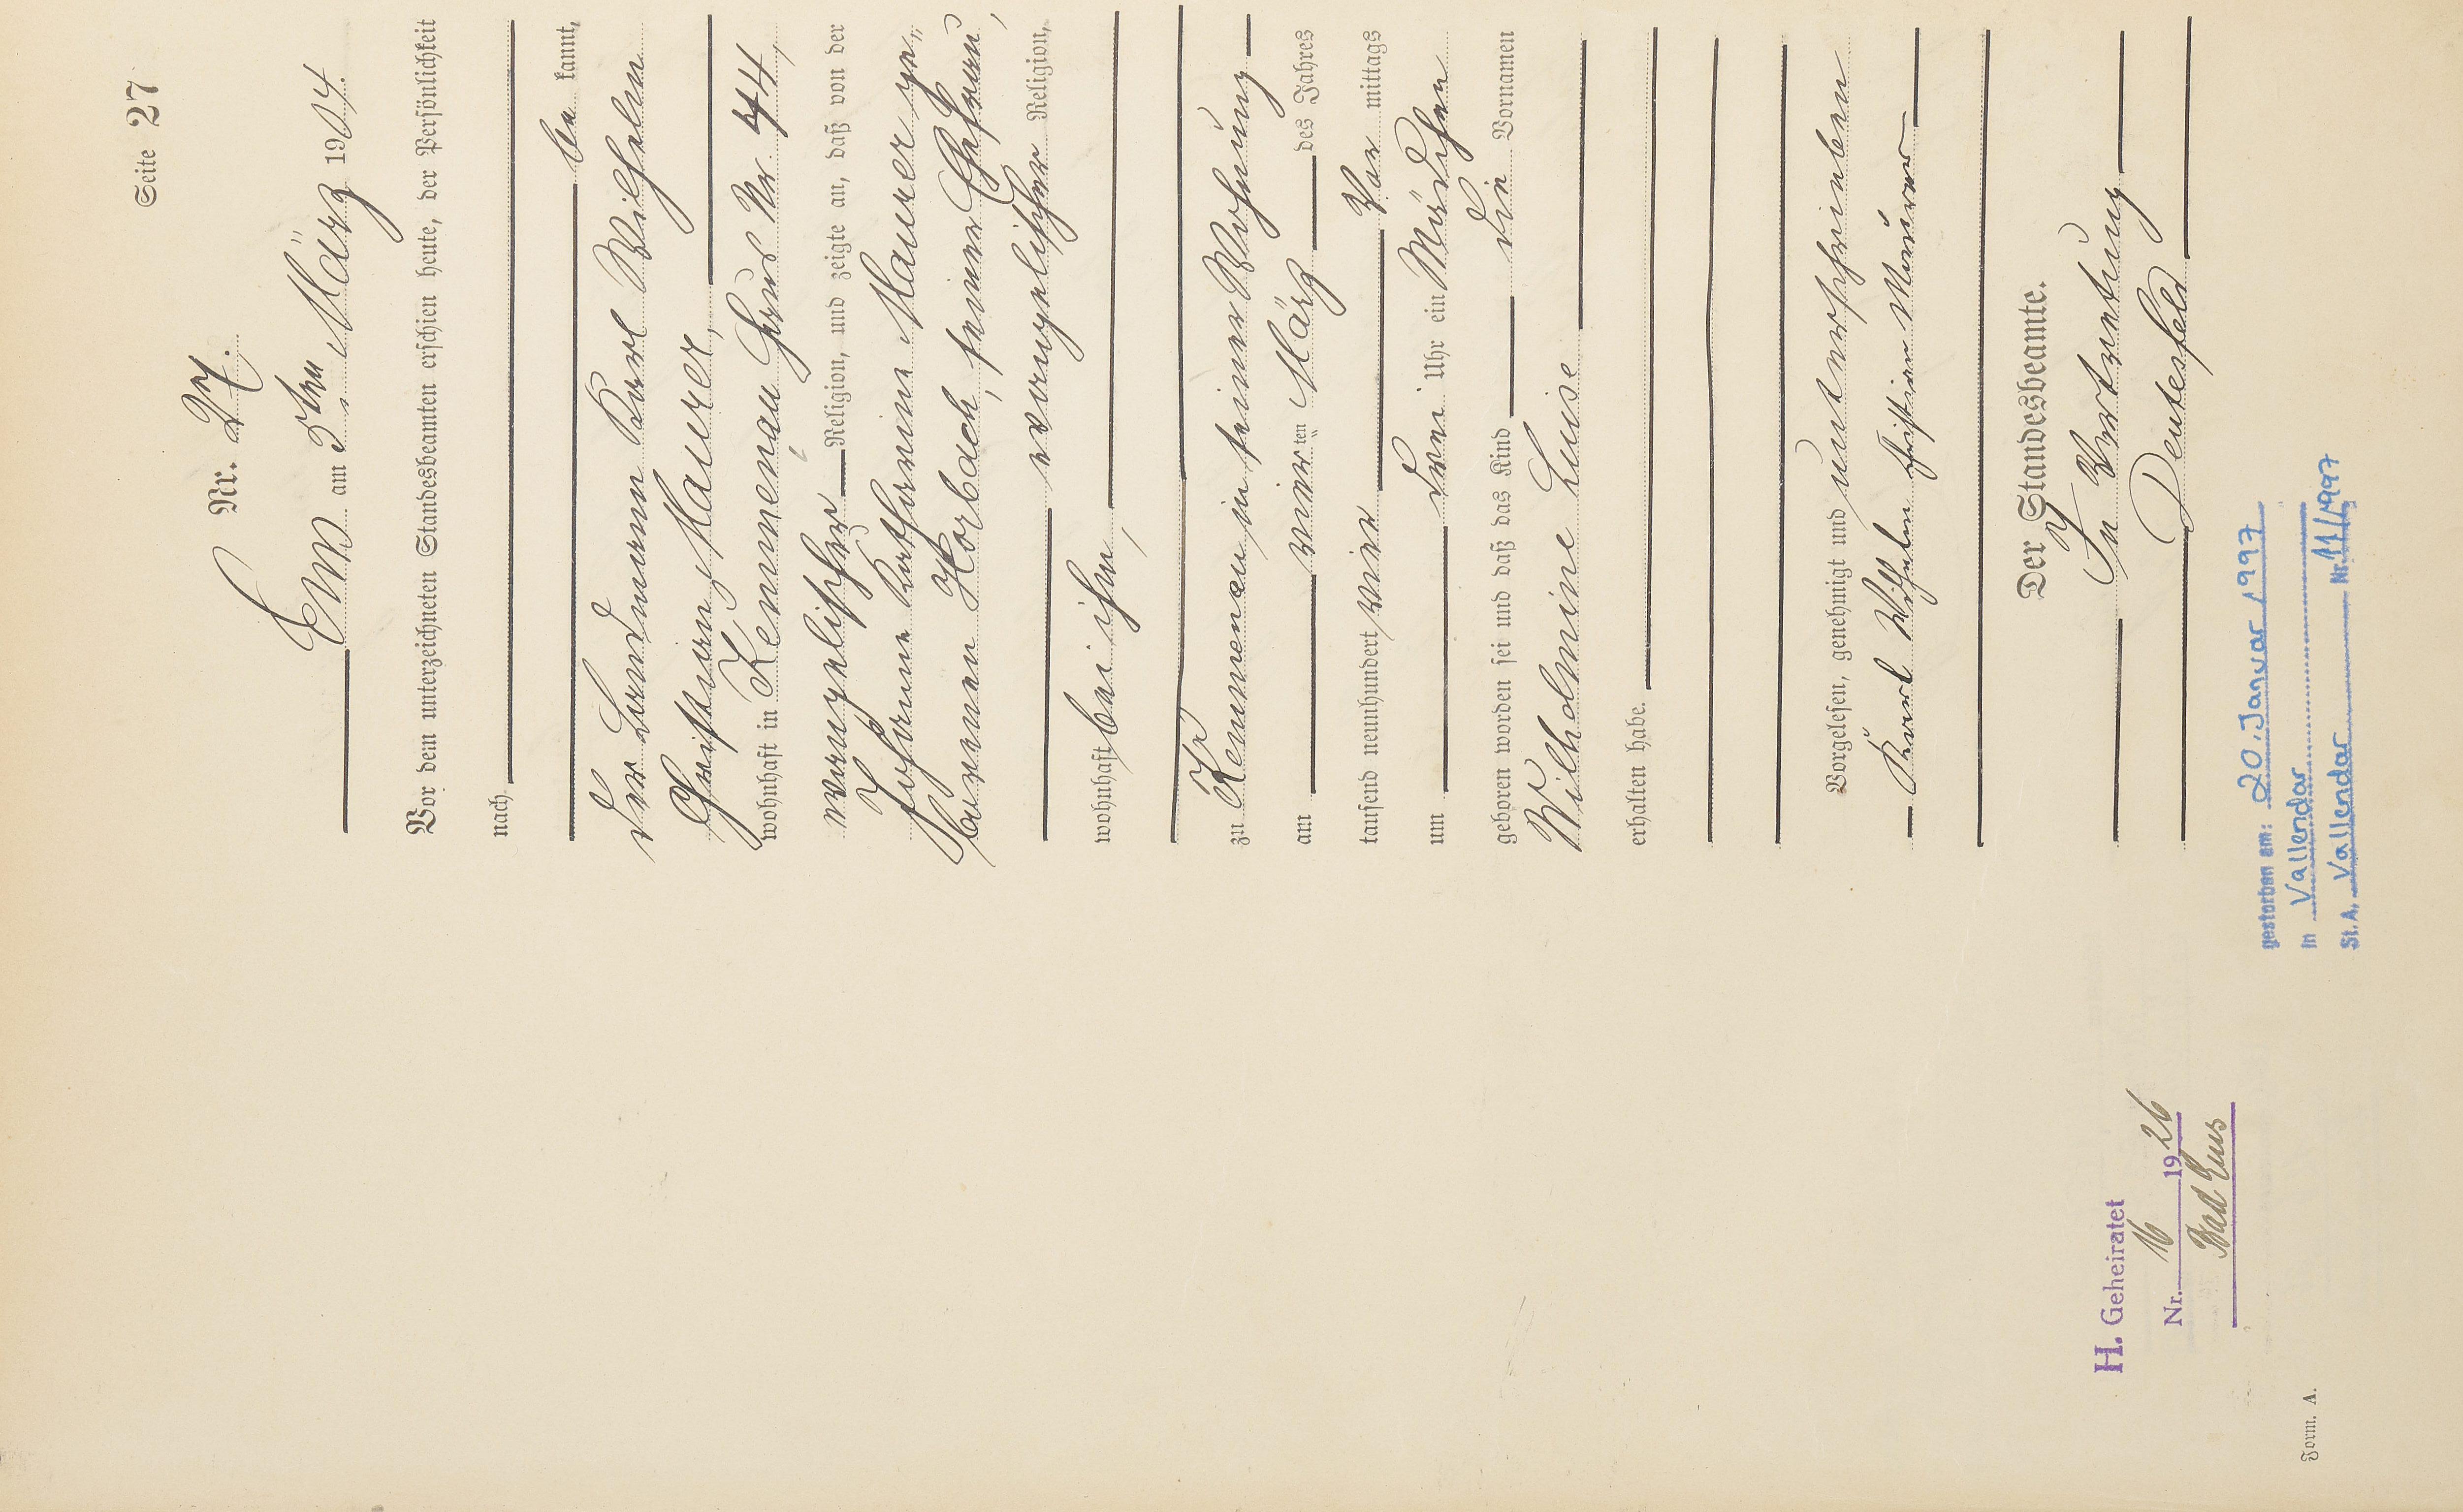 Seite 27
Nr. 27.
Ems am 5ten März 1904.
Vor dem unterzeichneten Standesbeamten erschien heute, der Persönlichkeit
nach
be kannt,
der Landmann Karl Wilhelm
Christian Maurer,
wohnhaft in Kemmenau Haus Nr. 44,
evangelischer Religion, und zeigte an, daß von der
Johanna Katharine Maurer ge-
borenen Horbach, seiner Ehefrau,
evangelischer Religion,
wohnhaft bei ihm,
zu Kemmenau in seiner Wohnung
am vierten März des Jahres
tausend neunhundert vier Vor mittags
um drei Uhr ein Mädchen
geboren worden sei und daß das Kind die Vornamen
Wilhelmine Luise
erhalten habe.
Vorgelesen, genehmigt und unterschrieben
Karl Wilhelm Christian Maurer
Der Standesbeamte.
In Vertretung
Deutesfeld
H. Geheiratet
Nr. 16 1926
Bad Ems
gestorben am: 20. Januar 1997
in Vallendar
St. A. Vallendar Nr. 11/1997
Form. A.